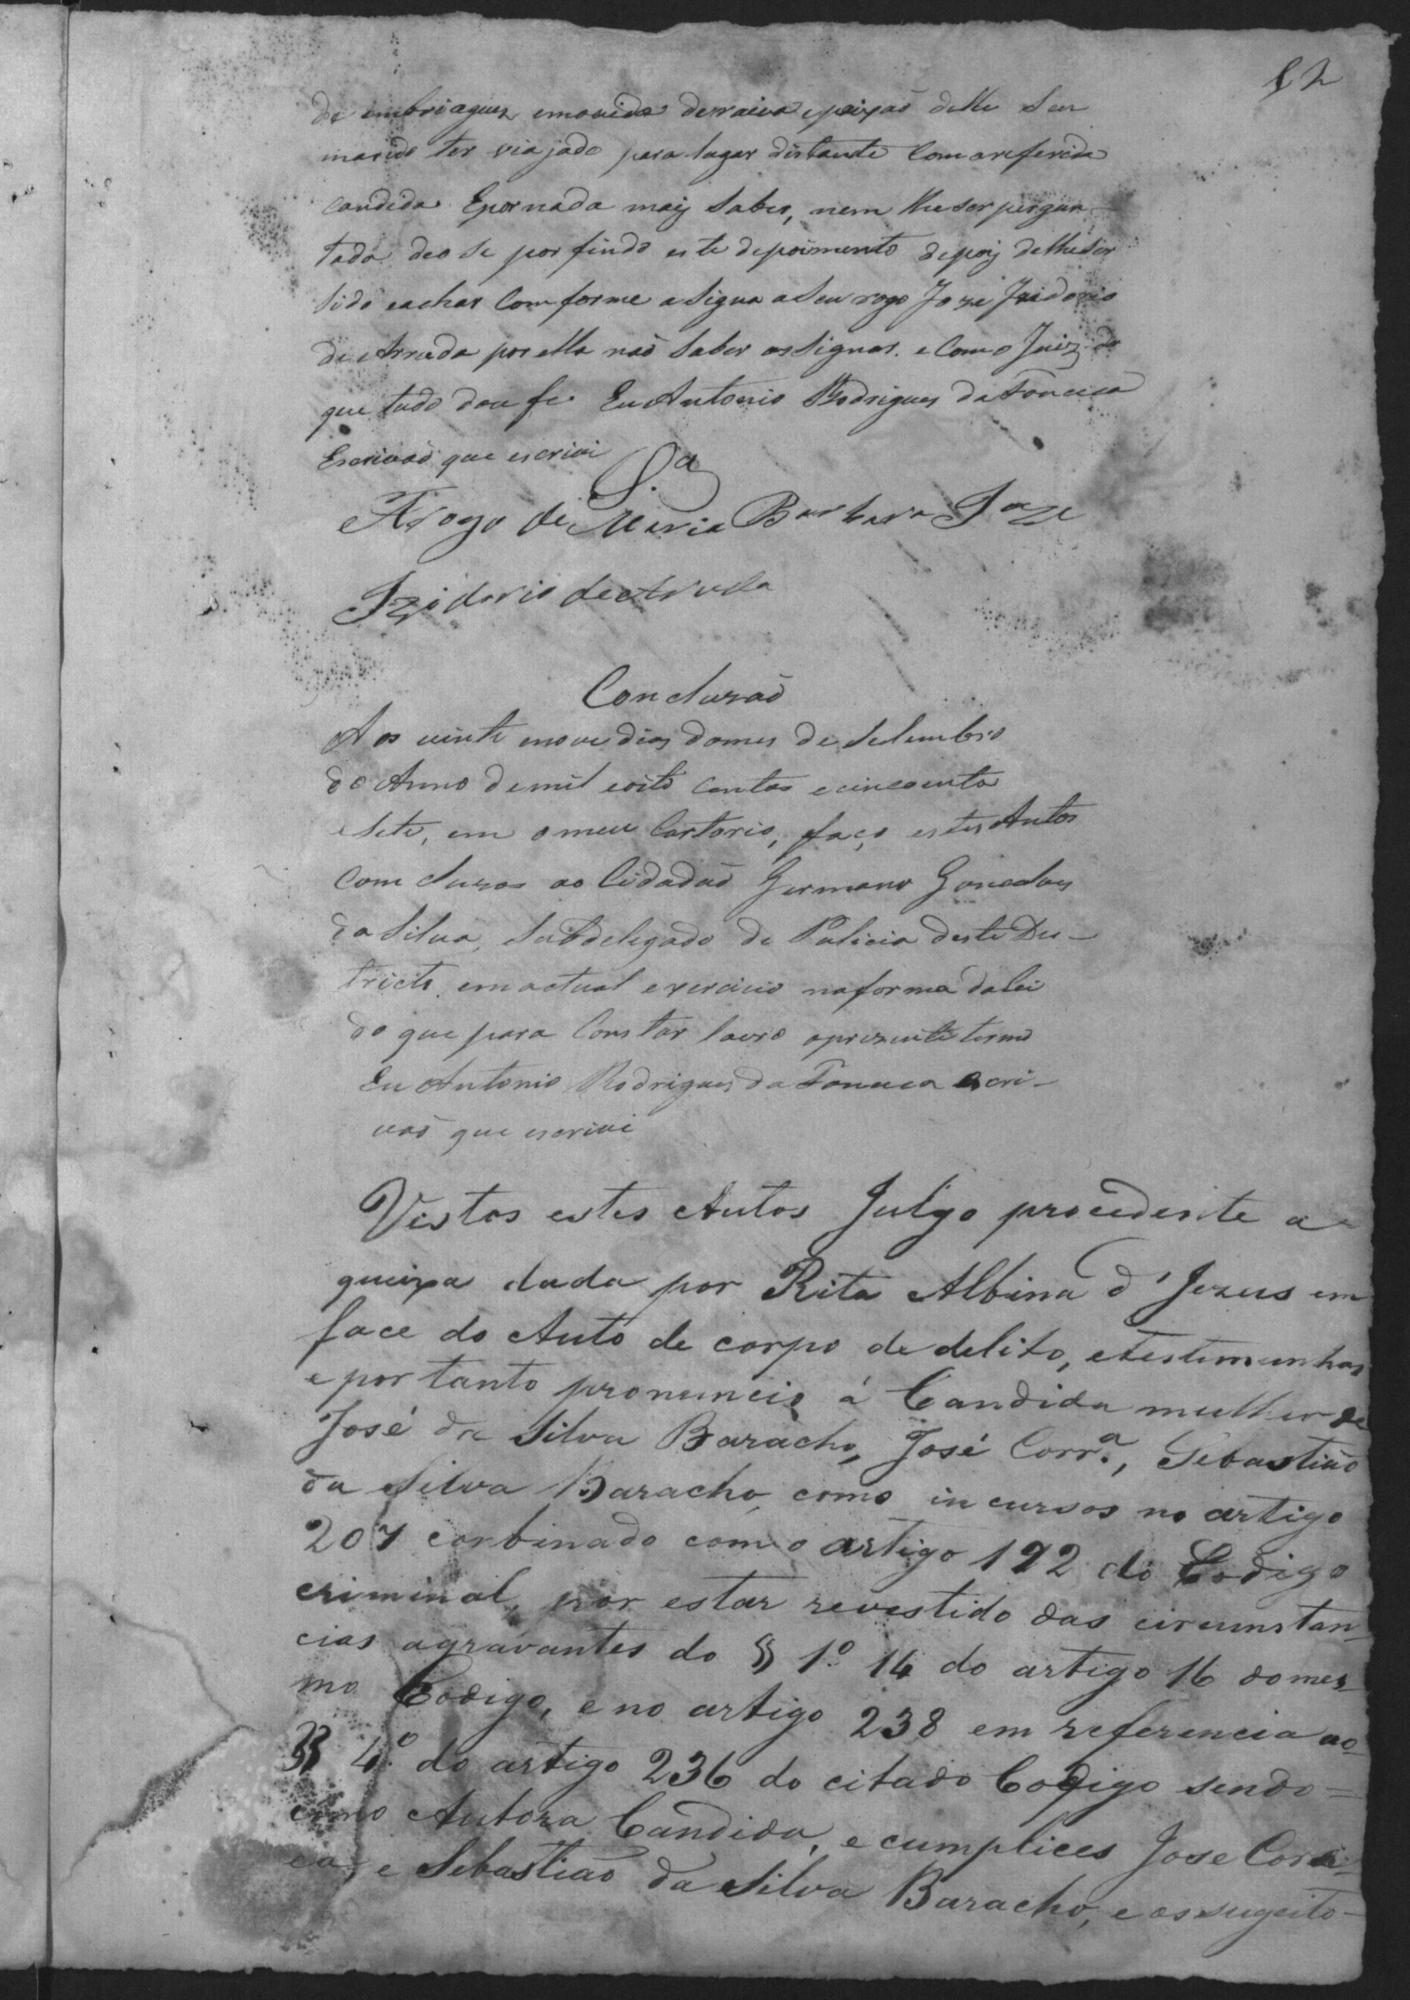 12
de embriaguez emovida derraiva epaixaõ delle Seu
marido ter viajado para lugar distante Comareferida
candida Epornada mais Saber, nem lheserpergun-
tado deo se por findo este depoimento depois delheser
lido eachar Comforme asigna aSeu rogo Joze Izidorio
de Arruda por ella naõ Saber assignar. e Como Juiz do
que tudo dou fe Eu Antonio Rodrigues da Fonceca
Escrivaõ que escrivi
Sa
A Rogo de Maria Barbara Joze
Izidorio de Arruda
Concluzaõ
Aos vinte enove dias domes de Setembro
do Anno demil eoito centos ecincoenta
eSete, em omeu Cartorio, faço estes Autos
Comcluzos ao Cidadaõ Germano Goncalves
da Silva, Subdelegado de Policia deste Des-
tricto emactual exercicio naforma dalei
do que para Constar lavro opresente termo
Eu Antonio Rodrigues da Fonceca escri-
vaõ que escrivi
Vistos estes Autos Julgo procedente a
queixa dada por Rita Albina d'Jezus em
face do Auto de corpo de delito, etestimunhas
e por tanto pronuncio á Candida mulher de
José da Silva Baracho, José Corr.ª, Sebastiaõ
da Silva Baracho, como incursos no artigo
207 conbinado com o artigo 192 do Codigo
criminal, por estar revestido das circunstan-
cias agravantes do § 1º 14 do artigo 16 domes-
mo Codigo, e no artigo 238 em referencia ao
§§ 4º do artigo 236 do citado Codigo sendo=
como Autora Candida, e cumplices Jose Corr
ea, e Sebastiaõ da Silva Baracho, e os sugeito-